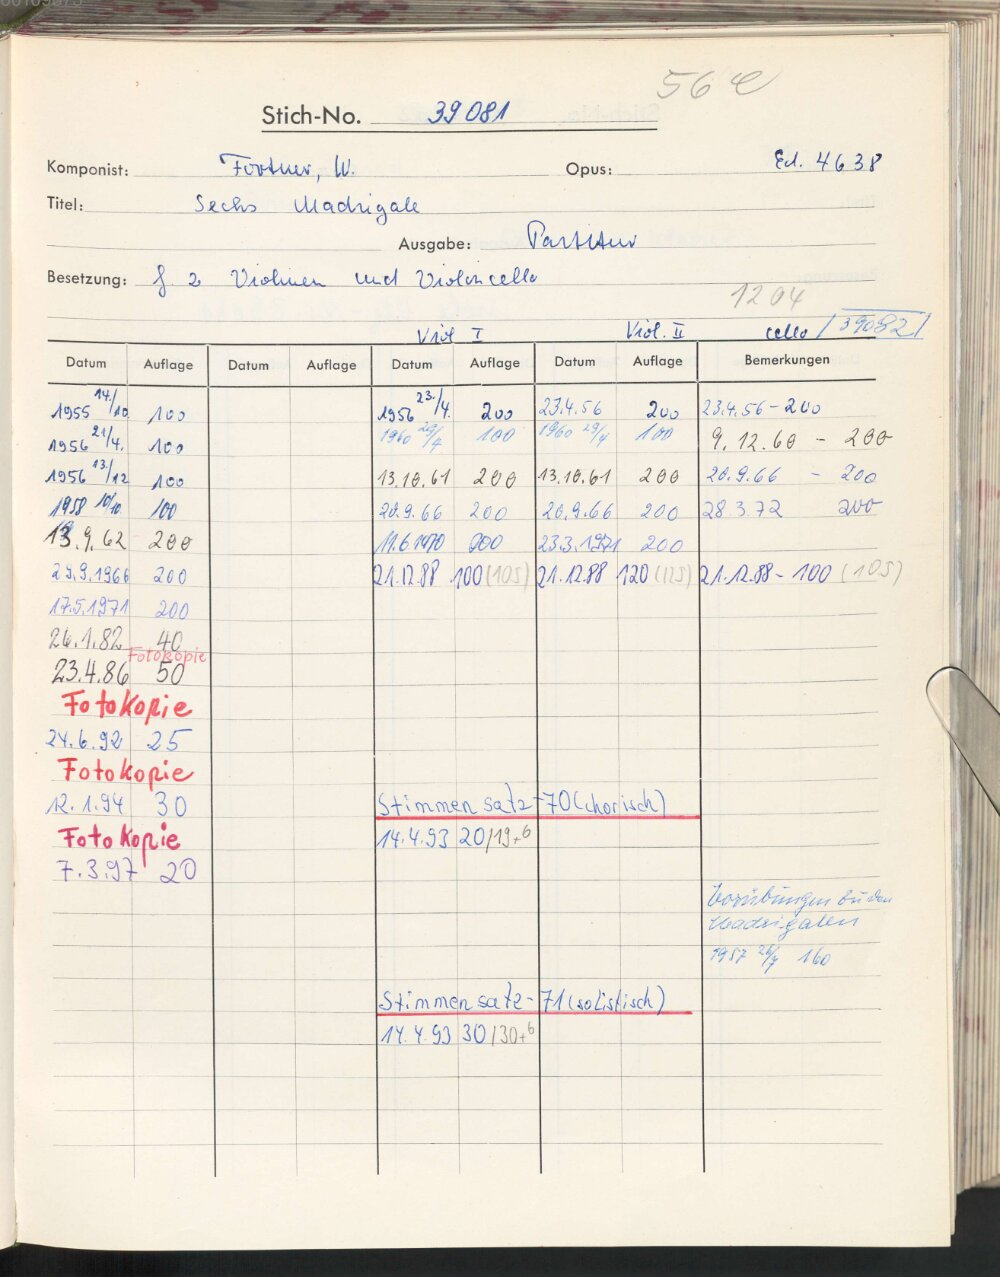 56 e
Stich-No. 39081
Komponist: Fortner, W. Opus: Ed. 4638
Titel: Sechs Madrigale
Ausgabe: Partitur
Besetzung: f. 2 Violinen und Violoncello
1204
Viol I Viol. II cello /39082/
Datum Auflage Datum Auflage Datum Auflage Datum Auflage Bemerkungen
1955 14./10. 100 1956 23./4. 200 23.4.56 200 23.4.56 - 200
1956 21/4. 100 1960 29/4 100 1960 29/4 100 9.12.60 - 200
1956 13./12 100 13.10.61 200 13.10.61 200 20.9.66 - 200
1958 10/10 100 20.9.66 200 20.9.66 200 28.3.72 200
13.9.62 200 11.6.1970 200 23.3.1971 200
29.9.1966 200 21.12.88 100 (105) 21.12.88 120 (125) 21.12.88 - 100 (105)
17.5.1971 200
26.1.82 40
Fotokopie
23.4.86 50
Fotokopie
24.6.92 25
Fotokopie
12.1.94 30 Stimmensatz-70 (chorisch)
Fotokopie 14.4.93 20/19+6
7.3.97 20
Vorübungen zu den
Madrigalen
1957 26/7 160
Stimmensatz-71 (solistisch)
14.4.93 30/30+6